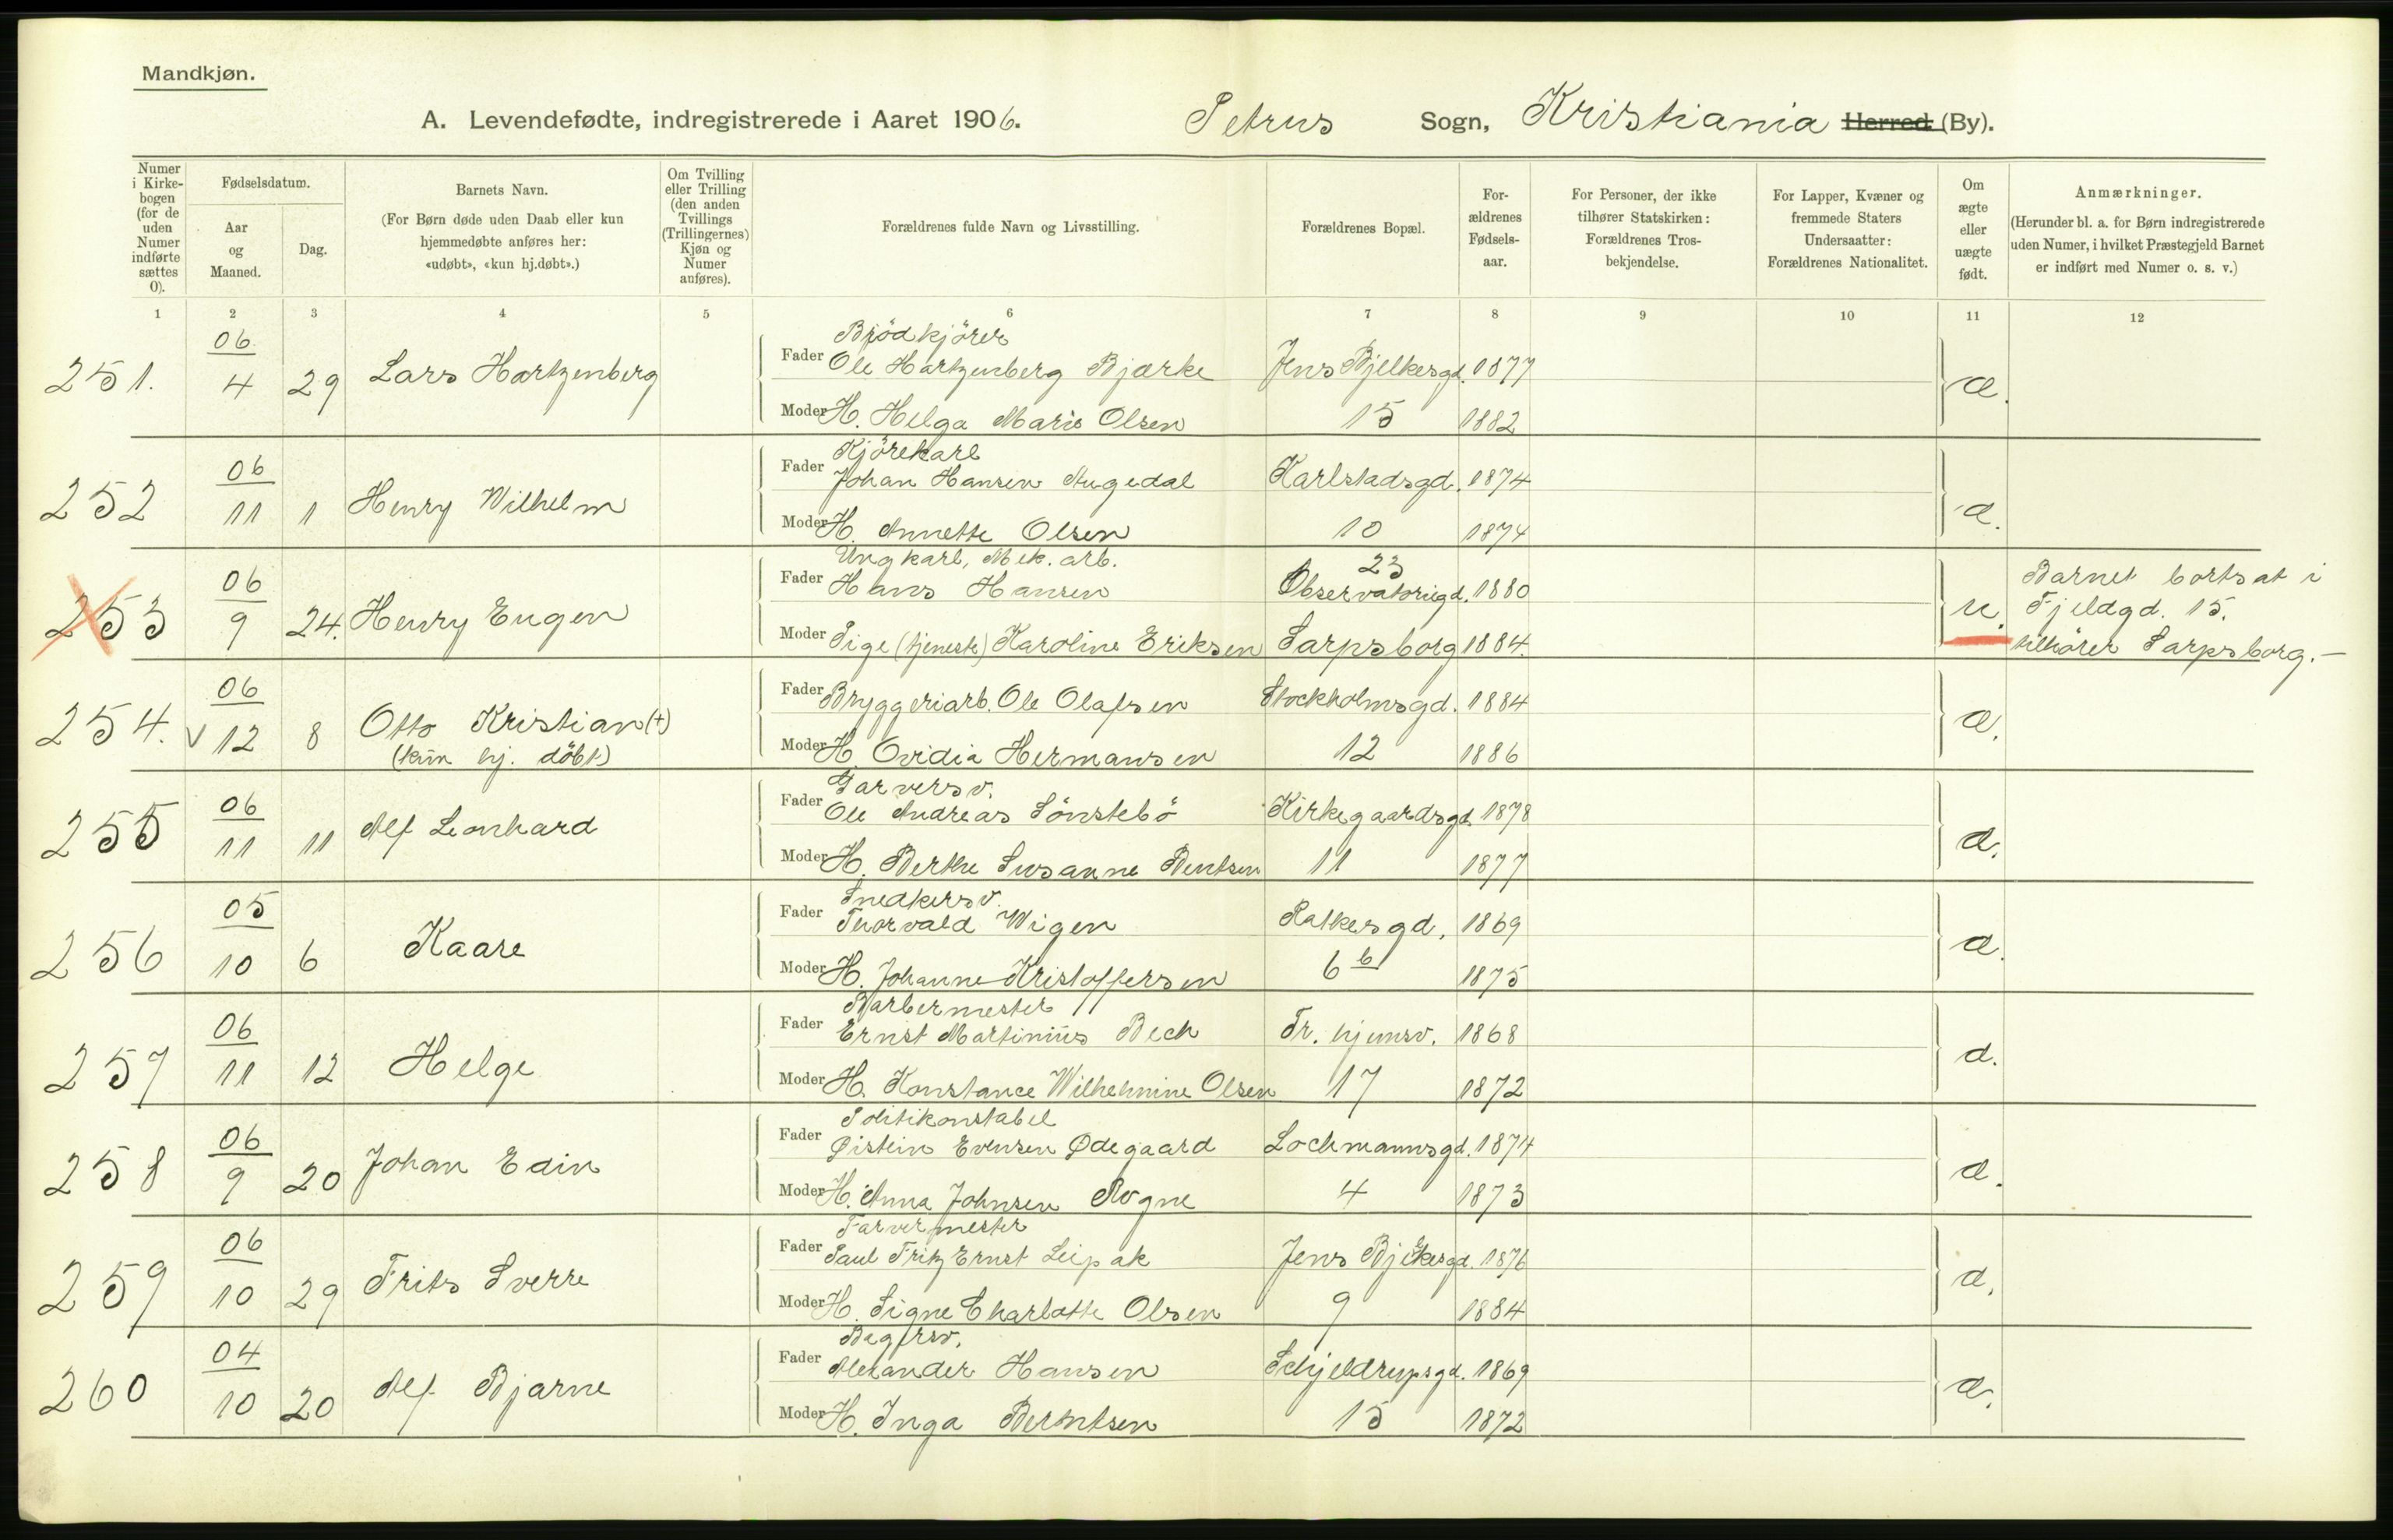 Mandkjøn.
A. Levendefødte, indregistrerede i Aaret 1906. Petrus Sogn, Kristiania Herred (By).
Numer i Kirkebogen (for de uden Numer indførte sættes 0).
Fødselsdatum.
Aar og Maaned.
Dag.
Barnets Navn.
(For Børn døde uden Daab eller kun hjemmedøbte anføres her: «udøbt», «kun hj.døbt».)
Om Tvilling eller Trilling (den anden Tvillings (Trillingernes) Kjøn og Numer anføres).
Forældrenes fulde Navn og Livsstilling.
Forældrenes Bopæl.
For-ældrenes Fødsels-aar.
For Personer, der ikke tilhører Statskirken: Forældrenes Tros-bekjendelse.
For Lapper, Kvæner og fremmede Staters Undersaatter: Forældrenes Nationalitet.
Om ægte eller uægte født.
Anmærkninger.
(Herunder bl. a. for Børn indregistrerede uden Numer, i hvilket Præstegjeld Barnet er indført med Numer o. s. v.)
1 2 3 4 5 6 7 8 9 10 11 12
06 Brödkjörer
251. 4 29 Lars Hartzenberg Fader Ole Hartzenberg Bjærke Jens Bjelkesgd. 1877 æ.
Moder H. Helga Marie Olsen 15 1882
06 Kjörekarl
252 11 1 Henry Wilhelm Fader Johan Hansen Augedal Karlstadsgd. 1874 æ.
Moder H. Annette Olsen 10 1874
06 Ungkarl, Mek. arb. 23 Barnet bortsat i
253 9 24. Henry Eugen Fader Hans Hansen Observatoriegd. 1880 u. Fjeldgd. 15.
Moder Pige (tjeneste) Karoline Eriksen Sarpsborg 1884. tilhører Sarpsborg.–
06 Fader Bryggeriarb. Ole Olafsen Stockholmsgd. 1884
254. v 12 8 Otto Kristian (+) æ.
(kun hj. döbt) Moder H. Ovidia Hermansen 12 1886
06 Garversv.
255 11 11 Alf Leonhard Fader Ole Andreas Sönstebö Kirkegaardsgd. 1878 æ.
Moder H. Berthe Susanne Bentsen 11 1877
05 Snedkersv.
256 10 6 Kaare Fader Thorvald Wigen Ratkesgd. 1869 æ.
Moder H. Johanne Kristoffersen 6 b 1875
06 Barbermester
257 11 12 Helge Fader Ernst Martinius Bech Tr. hjemsv. 1868 æ.
Moder H. Konstance Wilhelmine Olsen 17 1872
06 Politikonstabel
258 9 20 Johan Edin Fader Øistein Evensen Ødegaard Lochmannsgd. 1874 æ.
Moder H. Anna Johnsen Rogne 4 1873
06 Farvermester
259 10 29 Frits Sverre Fader Paul Fritz Ernst Leipak Jens Bjelkesgd. 1876 æ.
Moder H. Signe Charlotte Olsen 9 1884
04 Bagersv.
260 10 20 Alf Bjarne Fader Alexander Hansen Schjeldrupsgd. 1869 æ.
Moder H. Inga Berntsen 15 1872